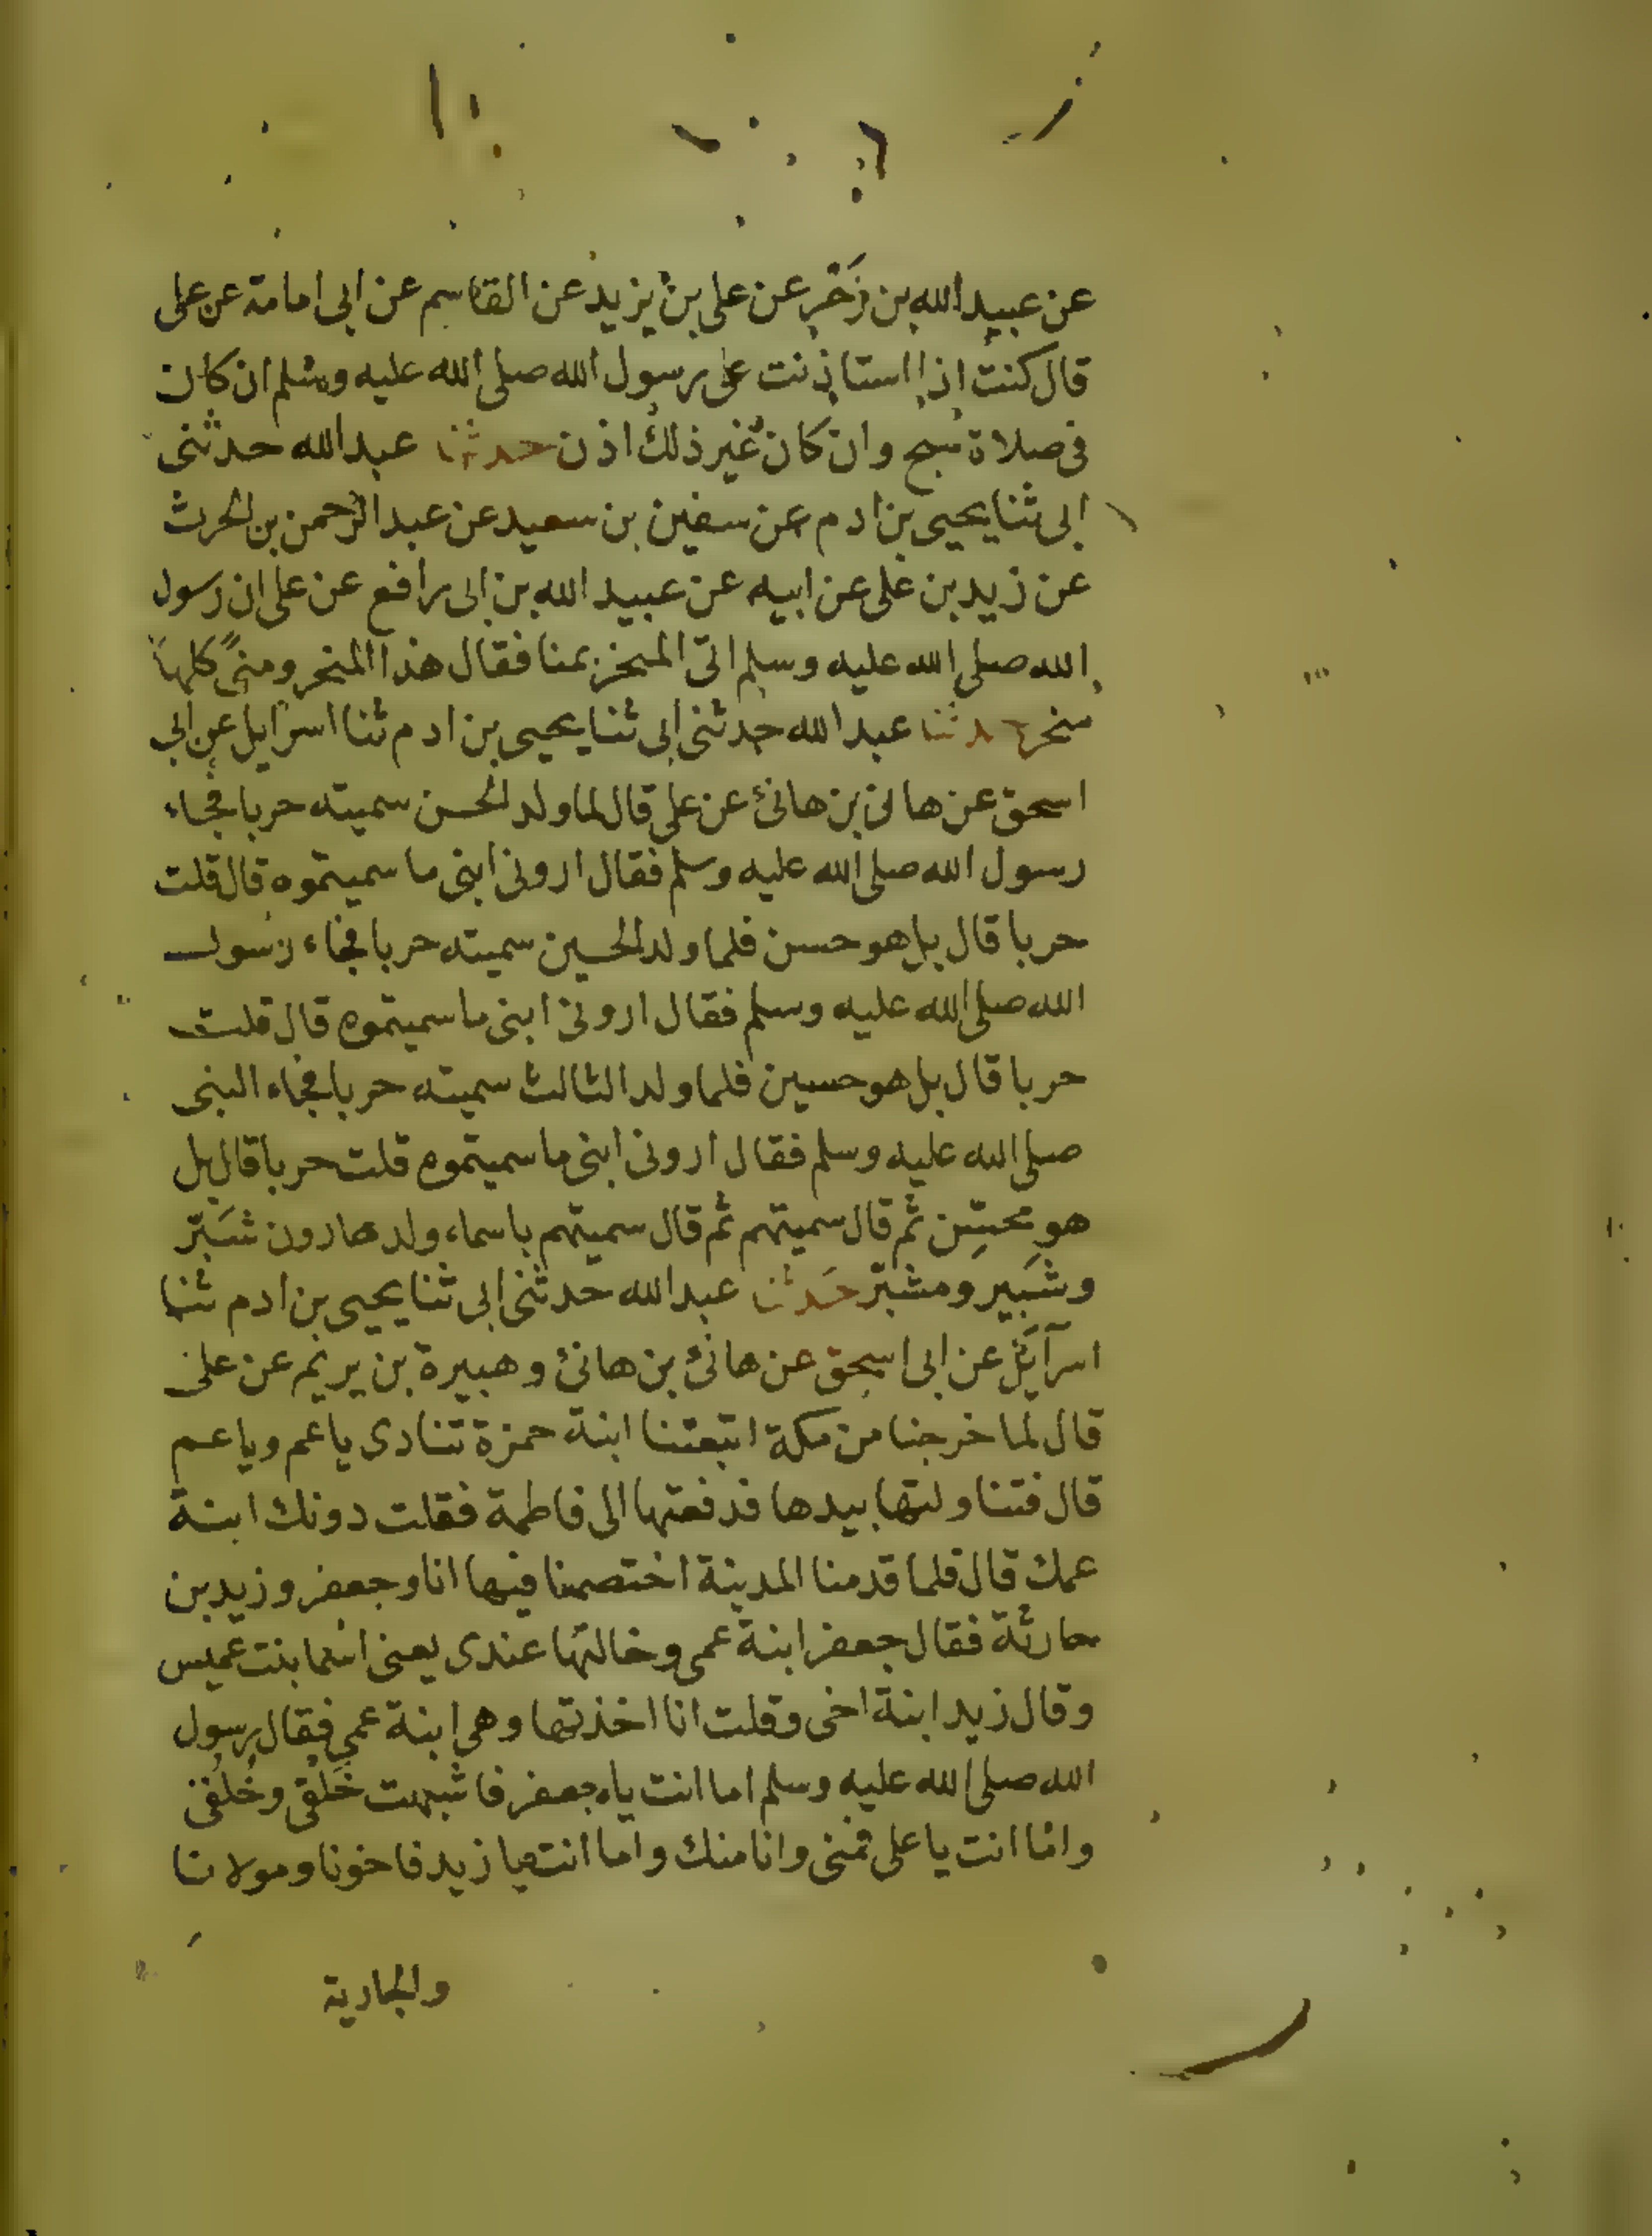 عن عبيد الله بن زَحْر عن على بن يزيد عن القاسم عن ابى امامة عن على
قال كنت اذا استاذنت على رسول الله صلى الله عليه وسلم ان كان
فى صلاة سبح وان كان غير ذلك اذن حدثنا عبد الله حدثنى
ابى ثنا يحيى بن ادم عن سفين بن سعيد عن عبد الرحمن بن الحرث
عن زيد بن على عن ابيه عن عبيد الله بن ابى رافع عن على ان رسول
الله صلى الله عليه وسلم اتى المنحر بمنا فقال هذا المنحر ومنًى كلها
منحر حدثنا عبد الله حدثنى ابى ثنا يحيى بن ادم ثنا اسرايل عن ابى
اسحق عن هانئ بن هانئ عن على قال لما ولد الحسن سميته حربا فجاء
رسول الله صلى الله عليه وسلم فقال ارونى ابنى ما سميتموه قال قلت
حربا قال بل هو حسن فلما ولد الحسين سميته حربا فجاء رسول
الله صلى الله عليه وسلم فقال ارونى ابنى ما سميتموه قال قلت
حربا قال بل هو حسين فلما ولد الثالث سميته حربا فجاء النبى
صلى الله عليه وسلم فقال ارونى ابنى ما سميتموه قلت حربا قال بل
هو محسِّن ثم قال سميتهم ثم قال سميتهم باسماء ولد هارون شَبّر
وشَبير ومشبّر حدثنا عبد الله حدثنى ابى ثنا يحيى بن ادم ثنا
اسرآيل عن ابى اسحق عن هانئ بن هانئ وهبيرة بن يريم عن على
قال لما خرجنا من مكة اتبعتنا ابنة حمزة تنادى يا عم ويا عم
قال فتناولتها بيدها فدفعتها الى فاطمة فقلت دونك ابنة
عمك قال فلما قدمنا المدينة اختصمنا فيها انا وجعفر وزيد بن
حارثة فقال جعفر ابنة عمى وخالتها عندى يعنى اسما بنت عميس
وقال زيد ابنة اخى وقلت انا اخذتها وهى ابنة عمى فقال رسول
الله صلى الله عليه وسلم اما انت يا جعفر فاشبهت خَلْقى وخُلُقى
واما انت يا على فمنى وانا منك واما انت يا زيد فاخونا ومولانا
والجارية